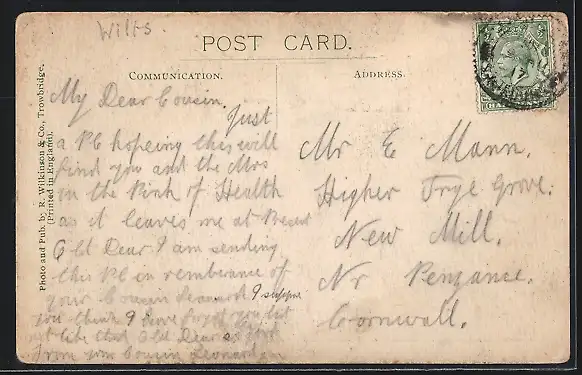 Wilts.
POST CARD.
COMMUNICATION.
ADDRESS.
Photo and Pub. by R. Wilkinson & Co., Trowbridge.
(Printed in England).
My Dear Cousin.
Just
a PC hopeing this will
find you and the Mrs
in the Pink of Health
as it leaves me at Present
Old Dear I am sending
this PC in rembrance of
your Cousin Leonard I suppose
you think I have forgot you but
not like that Old Dear
from your Cousin Leonard
Mr E Mann.
Higher Trye Grove.
New Mill.
Nr Penzance.
Cornwall.